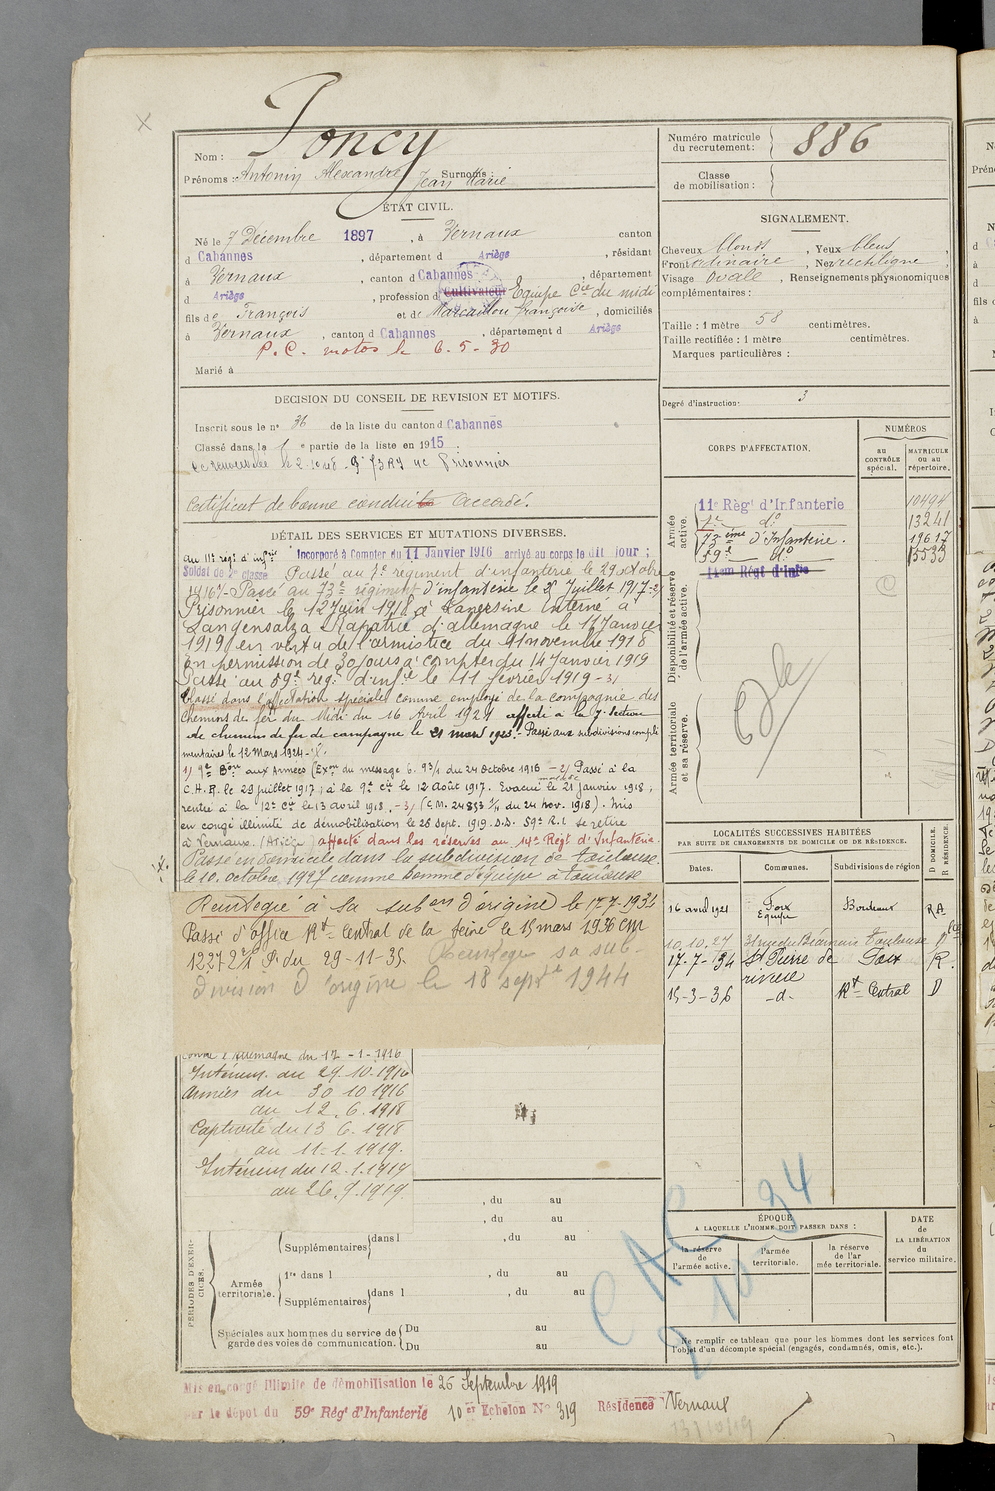 Numéro matricule
du recrutement :
886
Nom :
Prénoms : Antonin Alexandre Jean Marie Surnoms :
Classe
de mobilisation :
ÉTAT CIVIL.
Né le 7 Décembre 1897, à Vernaux canton
d Cabannes, département d Ariège, résidant
à Vernaux, canton d Cabannes, département
d Ariège, profession d Cultivateur Equipe Cie du midi
fils de François et de Marcaillou françoise, domiciliés
à Vernaux, canton d Cabannes, département d Ariège
P.C. motos le 6-5-30
Marié à
SIGNALEMENT.
Cheveux blonds, Yeux bleus,
Front ordinaire, Nez rectiligne
Visage ovale, Renseignements physionomiques
complémentaires :
Taille : 1 mètre 58 centimètres.
Taille rectifiée : 1 mètre centimètres.
Marques particulières :
Degré d'instruction : 3
DECISION DU CONSEIL DE REVISION ET MOTIFS.
Inscrit sous le n° 36 de la liste du canton d Cabannes
Classé dans la 1 e partie de la liste en 1915.
Certificat de bonne conduite accordé.
DÉTAIL DES SERVICES ET MUTATIONS DIVERSES.
au 11e régt d'infie Incorporé à Compter du 11 Janvier 1916 arrivé au corps le dit jour ;
Soldat de 2e classe Passé au 7e régiment d'infanterie le 29 octobre
1916 - Passé au 73e régiment d'infanterie le 2 Juillet 1917 -2)
Prisonnier le 12 Juin 1918 à Interné à
Langensalza Rapatrié d'allemagne le 11 Janvier
1919 en vertu de l'armistice du 11 novembre 1918
En permission de 30 jours à compter du 14 Janvier 1919
Passé au 59e rég. d'infie le 11 février 1919 - 3)
Classé dans l'affectation spéciale comme employé de la compagnie des
chemins de fer du Midi du 16 Avril 1921 affecté à la 7e Section
de chemins de fer de campagne le 21 mars 1923. - Passé aux subdivisions complé
mentaires le 12 Mars 1924
1) aux Armées (Exon du message 6.93/1 du 24 octobre 1916 - 2) Passé à la
C.H.R. le 29 juillet 1917, à la 9e Cie le 12 Août 1917. Evacué le 21 janvier 1918,
rentré à la 12e Cie le 13 avril 1918, - 3) (C.M. 24853 1/11 du 24 nov. 1918). Mis
en congé illimité de démobilisation le 26 Sept. 1919. D.D. 59e R.I. se retire
à Vernaux. (Ariège) affecté dans les réserves au 14e Régt d'Infanterie.
Passé en domicile dans la subdivision de Toulouse
le 10. octobre 1927 comme homme d'équipe à toulouse
Renvoyé à sa subon d'origine le 17-7-1934
Passé d'office Rt Central de la Seine le 15 mars 1936 CM
1227 2/1 P. du 29-11-35 Renvoyé sa sub
division d'origine le 18 septe 1944
Contre l'Allemagne du 12-1-1916
Intérieur. au 29.10.1916
Armées du 30 10 1916
au 12.6.1918
Captivité du 13 6.1918
au 11-1.1919.
Intérieur du 12.1.1919
au 26.9.1919.
CORPS D'AFFECTATION.
NUMÉROS
AU CONTRÔLE spécial.
MATRICULE OU AU répertoire.
Armée active.
11e Régt d'Infanterie 10494
7e do 13241
73 ème d'Infanterie. 19617
59e do 15533
Disponibilité et réserve de l'armée active.
Armée territoriale et sa réserve.
LOCALITÉS SUCCESSIVES HABITÉES
PAR SUITE DE CHANGEMENTS DE DOMICILE OU DE RÉSIDENCE.
Dates. Communes. Subdivisions de région D DOMICILE. R RÉSIDENCE.
16 avril 1921 Foix Equipe Bordeaux RA
10.10.27 31 rue du Béarnais Toulouse D
17-7-34 St Pierre de rivière Foix R.
15-3-36 -d- Rt Central D
CAC
2 10 34
, du au
, du au
PÉRIODES D'EXERCICES.
Supplémentaires dans l , du au
Armée territoriale.
1re dans l , du au
Supplémentaires dans l , du au
Spéciales aux hommes du service de garde des voies de communication.
Du au
Du au
ÉPOQUE
A LAQUELLE L'HOMME DOIT PASSER DANS :
la réserve de l'armée active.
l'armée territoriale.
la réserve de l'ar mée territoriale.
DATE DE LA LIBÉRATION du service militaire.
Ne remplir ce tableau que pour les hommes dont les services font
l'objet d'un décompte spécial (engagés, condamnés, omis, etc.).
Mis en congé illimité de démobilisation le 26 Septembre 1919
par le dépot du 59e Régt d'Infanterie 10 e Echelon No 319 Résidence Vernaux
13/10/19